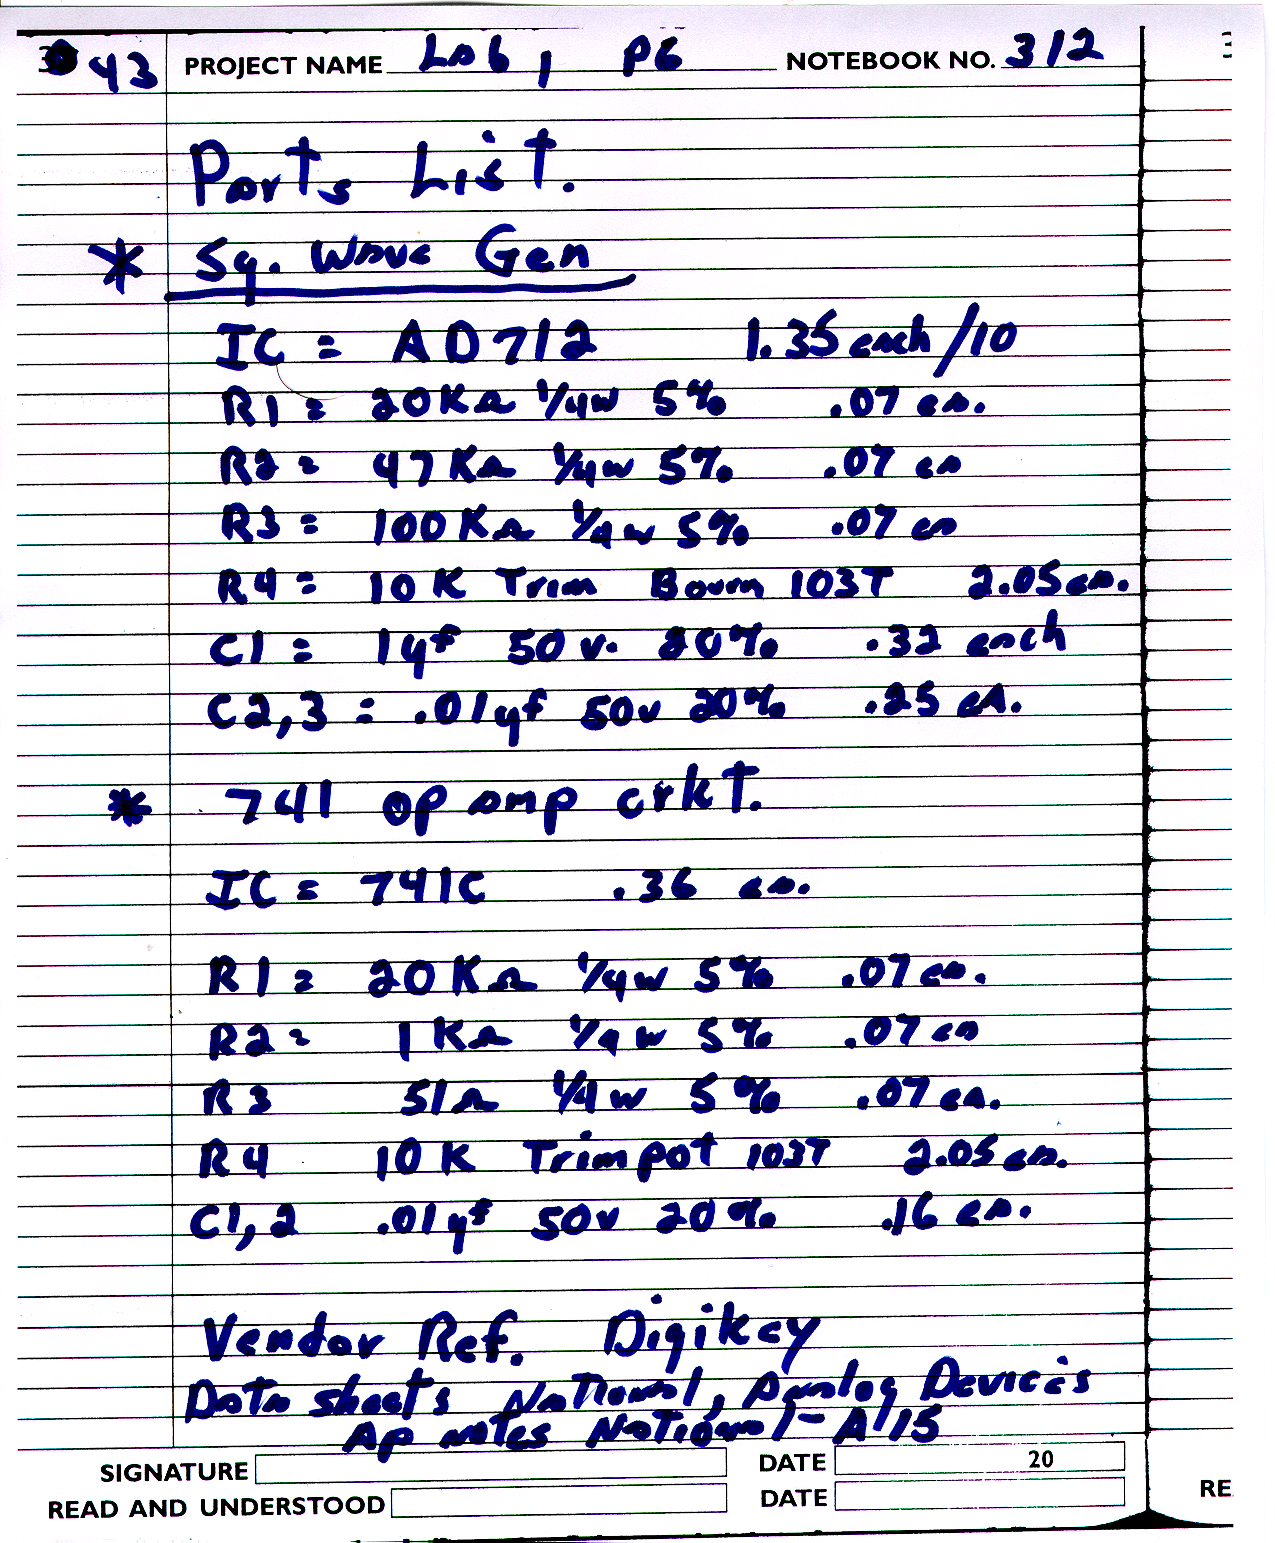 43 PROJECT NAME Lab 1 P6 NOTEBOOK NO. 312
Parts List.
* Sq. Wave Gen
IC = AD712 1.35 each/10
R1 = 20KΩ 1/4w 5% .07 ea.
R2 = 47KΩ 1/4w 5% .07 ea
R3 = 100KΩ 1/4w 5% .07 ea
R4 = 10K Trim Bourn 103T 2.05 ea.
C1 = 1µf 50v. 20% .32 each
C2,3 = .01µf 50v 20% .25 eA.
* 741 op amp crkT.
IC = 741C .36 ea.
R1 = 20KΩ 1/4w 5% .07 ea.
R2 = 1KΩ 1/4w 5% .07 ea
R3 51Ω 1/4w 5% .07 ea.
R4 10K Trimpot 103T 2.05 ea.
C1,2 .01µf 50v 20% .16 ea.
Vendor Ref. Digikey
Data sheets National, Analog Devices
Ap notes National - A115
SIGNATURE DATE 20
READ AND UNDERSTOOD DATE
RE